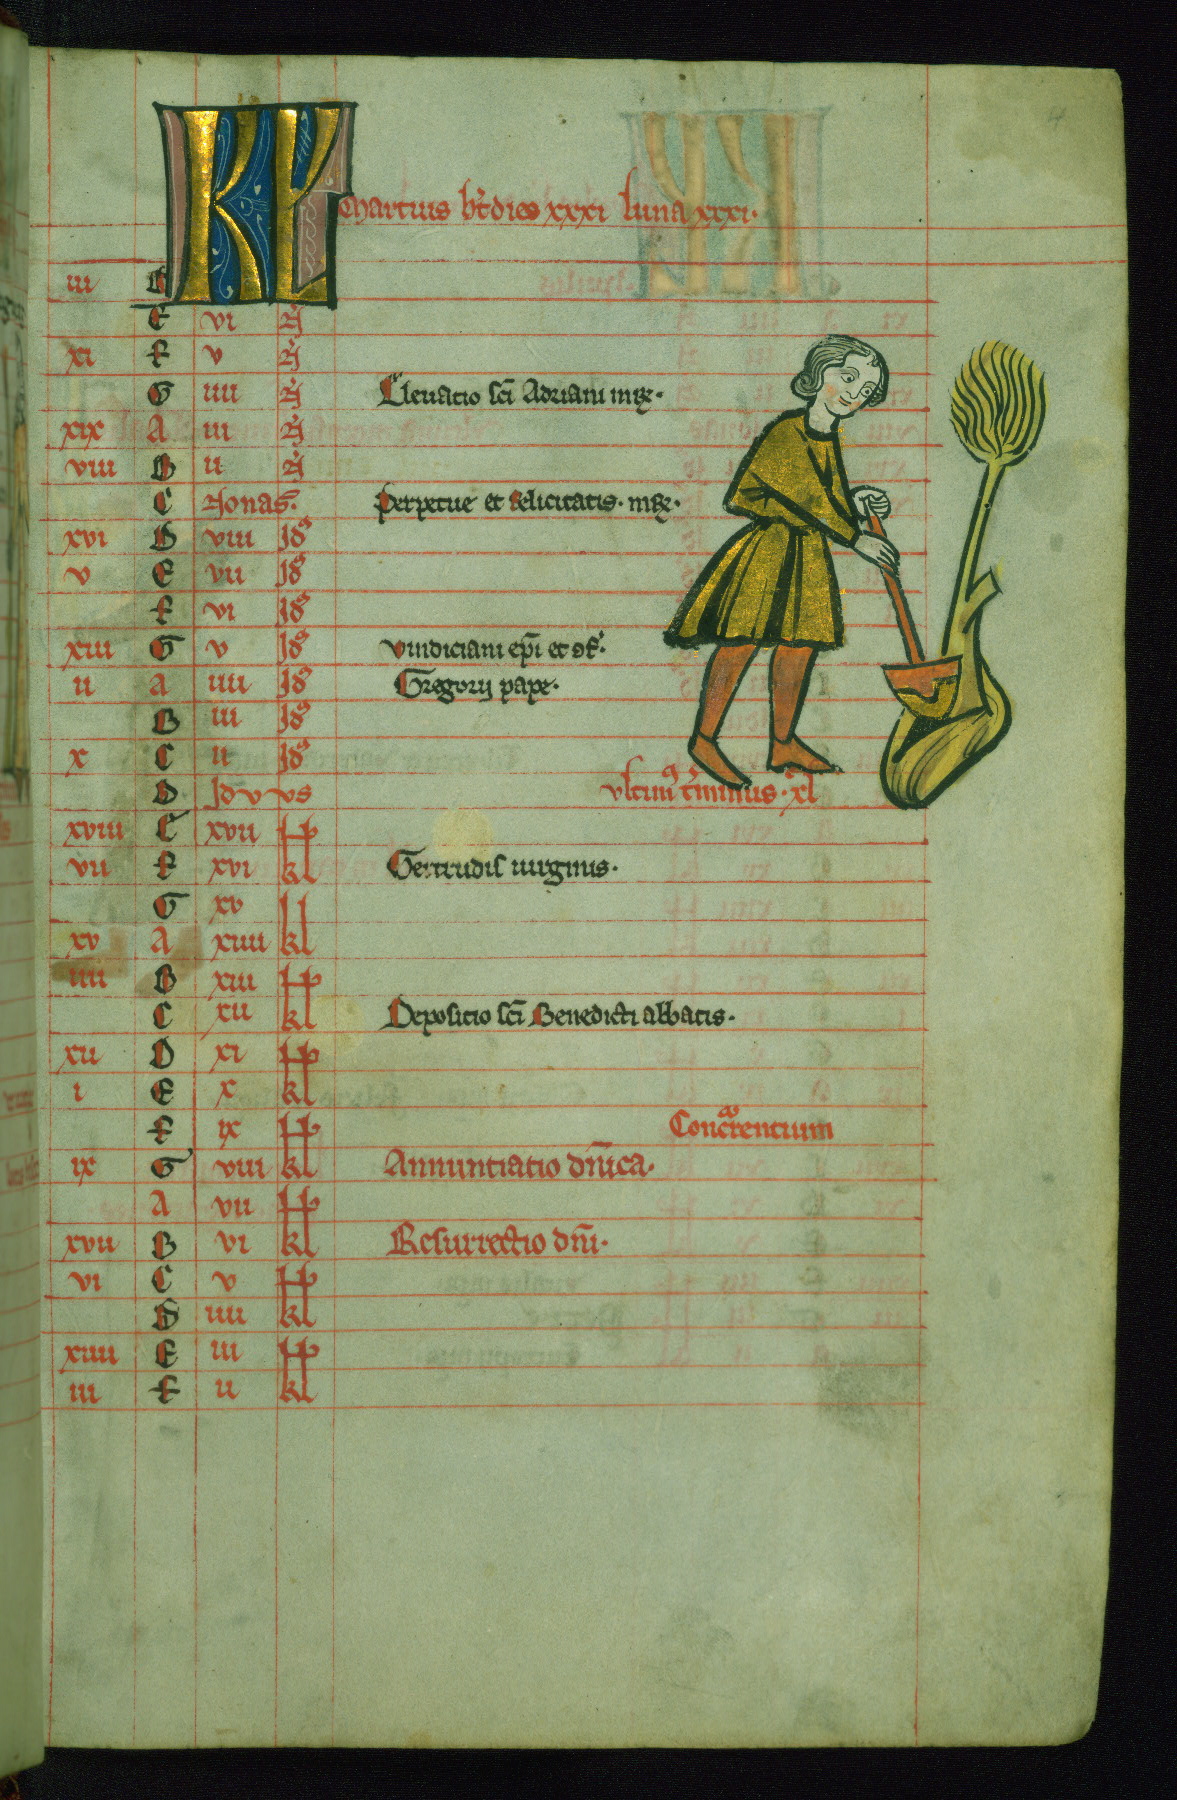 KL Martius ht dies xxxi luna xxxi.
iii D
E vi N
xi F v N
G iiii N Elevatio sci Adriani mr.
xix A iii N
viii B ii N
C Nonas. Perpetue et felicitatis. mr.
xvi D viii Id
v E vii Id
F vi Id
xiii G v Id Vindiciani epi et cf.
ii A iiii Id Gregorii pape.
B iii Id
x C ii Id
D Idvvs vltim t'minus. xl
xviii E xvii kl
vii F xvi kl Gertrudis uirginis.
G xv kl
xv A xiiii kl
iiii B xiii kl
C xii kl Depositio sci Benedicti abbatis.
xii D xi kl
i E x kl
F ix kl Concrrentium
ix G viii kl Annuntiatio dnica.
A vii kl
xvii B vi kl Resurrectio dni.
vi C v kl
D iiii kl
xiiii E iii kl
iii F ii kl